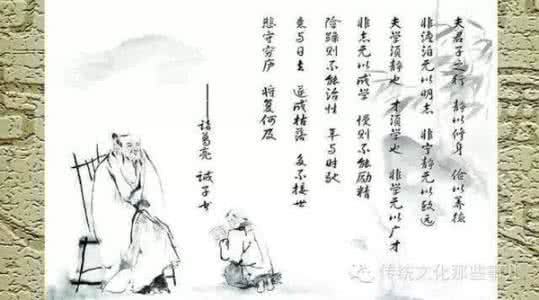 夫君子之行 静以修身 俭以养德
非澹泊无以明志 非宁静无以致远
夫学须静也 才须学也 非学无以广才
非志无以成学 慢则不能励精
险躁则不能治性 年与时驰
意与日去 遂成枯落 多不接世
悲守穷庐 将复何及
——诸葛亮 诫子书
传统文化那些事儿